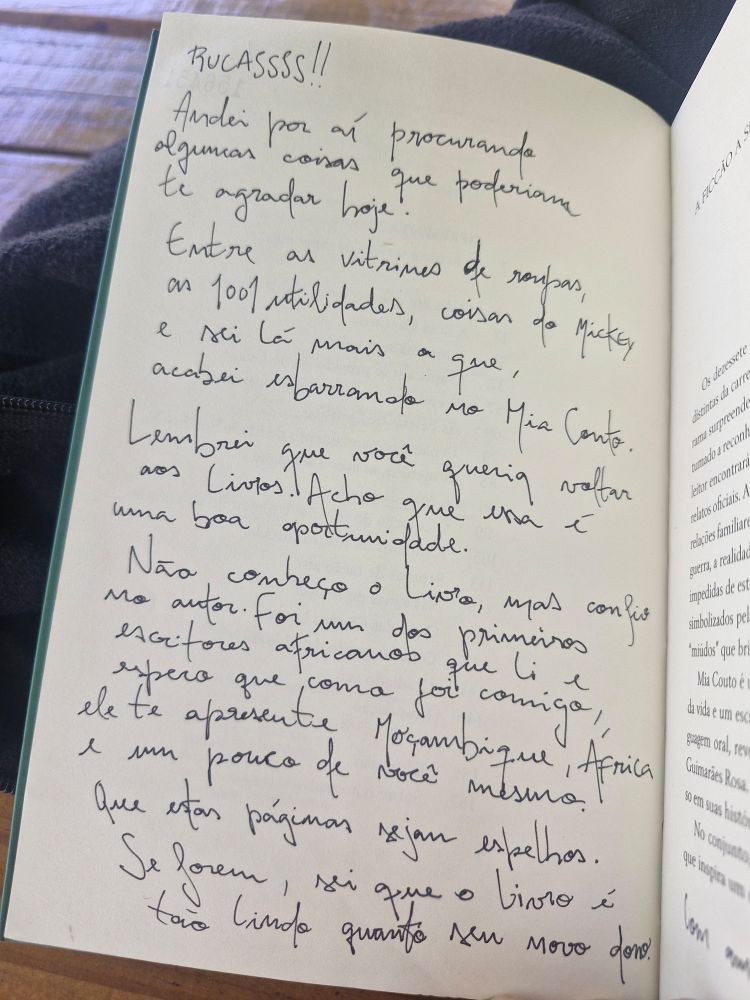 RUCASSSS!!
Andei por aí procurando
algumas coisas que poderiam
te agradar hoje.
Entre as vitrines de roupas,
as 1001 utilidades, coisas do Mickey
e sei lá mais o que,
acabei esbarrando no Mia Couto.
Lembrei que você queria voltar
aos livros. Acho que essa é
uma boa oportunidade.
Não conheço o livro, mas confio
no autor. Foi um dos primeiros
escritores africanos que li e
espero que, como foi comigo,
ele te apresente Moçambique, África
e um pouco de você mesmo.
Que estas páginas sejam espelhos.
Se forem, sei que o livro é
tão lindo quanto seu novo dono.
A FICÇÃO A
Os dezessete
distintas da carre
rama surpreende
tumado a reconh
leitor encontrará
relatos oficiais. A
relações familiare
guerra, a realidad
impedidas de est
simbolizados pel
"miúdos" que bri
Mia Couto é u
da vida e um escr
guagem oral, rev
Guimarães Rosa.
so em suas histór
No conjunto,
que inspira um
Com